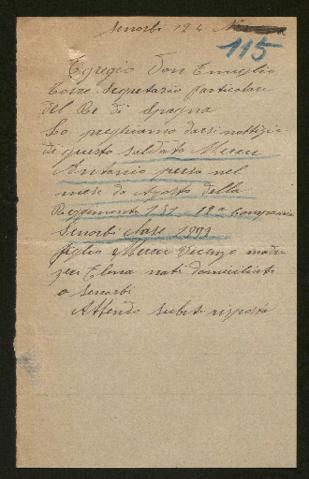 Senorbi 19 4
115
Egregio Don Emiglio
Torre Segretario particolare
del Re di Spagna
Lo preghiamo darsi nottizia
di questo soldato Mereu
Antonio perso nel
mese da Agosto della
Regimento 151 12a Compagnia
Senorbi Clase 1893
figlio Mereu madre
Elena nati domiciliati
a Senorbi
Attendo subito risposta